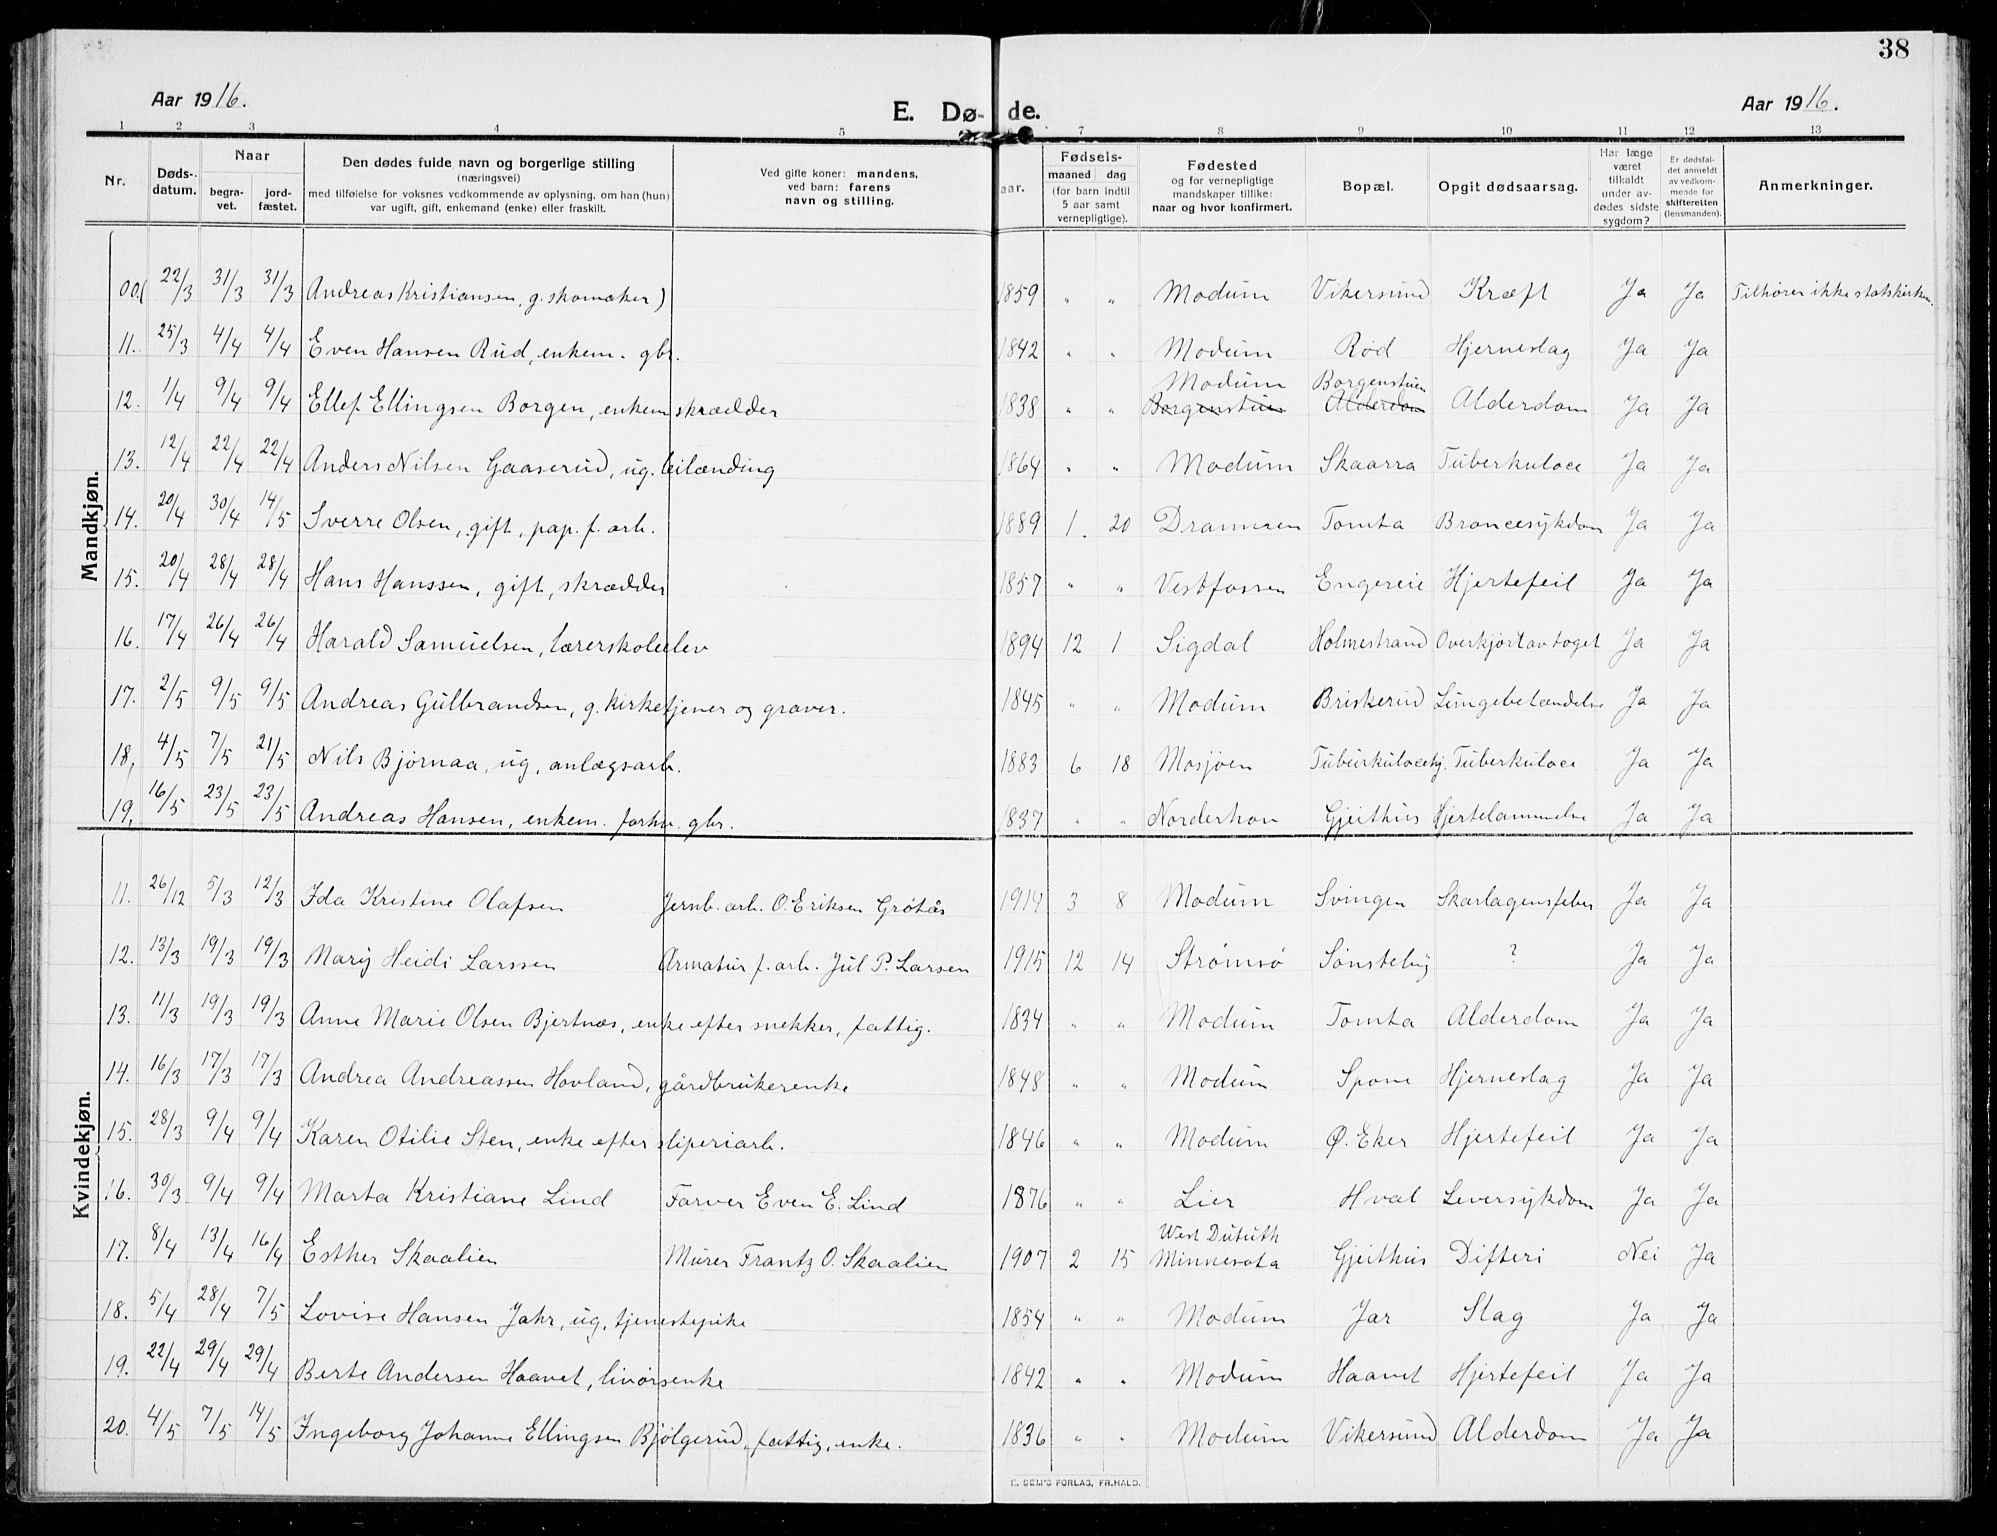 38
Aar 1916. E. Dø- de. Aar 1916.
1 2 3 4 5 7 8 9 10 11 12 13
Nr. Døds-datum. Naar begra-vet. jord-fæstet. Den dødes fulde navn og borgerlige stilling (næringsvei) med tilføielse for voksnes vedkommende av oplysning, om han (hun) var ugift, gift, enkemand (enke) eller fraskilt. Ved gifte koner: mandens, ved barn: farens navn og stilling. aar. Fødsels- maaned dag (for barn indtil 5 aar samt vernepligtige). Fødested og for vernepligtige mandskaper tillike: naar og hvor konfirmert. Bopæl. Opgit dødsaarsag. Har læge været tilkaldt under av-dødes sidste sygdom? Er dødsfal-det anmeldt av vedkom-mende for skifteretten (lensmanden). Anmerkninger.
Mandkjøn.
00.( 22/3 31/3 31/3 Andreas Kristiansen, g. skomaker) 1859 " " Modum Vikersund Kræft Ja Ja Tilhører ikke statskirken.
11. 25/3 4/4 4/4 Even Hansen Rud, enkem. gbr. 1842 " " Modum Rød Hjerneslag Ja Ja
Modum Borgenstuen
12. 1/4 9/4 9/4 Ellef Ellingsen Borgen, enkem skrædder 1838 " " Borgenstuen Alderdom Alderdom Ja Ja
13. 12/4 22/4 22/4 Anders Nilsen Gaaserud, ug. leilænding 1864 " " Modum Skaarra Tuberkuloce Ja Ja
14. 20/4 30/4 14/5 Sverre Olsen, gift, pap. f. arb. 1889 1. 20 Drammen Tomta Broncesykdom Ja Ja
15. 20/4 28/4 28/4 Hans Hanssen, gift, skrædder 1857 " " Vestfossen Engereie Hjertefeil Ja Ja
16. 17/4 26/4 26/4 Harald Samuelsen, lærerskoleelev 1894 12 1 Sigdal Holmestrand Overkjørt av toget Ja Ja
17. 2/5 9/5 9/5 Andreas Gulbrandsen, g. kirketjener og graver. 1845 " " Modum Briskerud Lungebetændelse Ja Ja
18, 4/5 7/5 21/5 Nils Bjørnaa, ug, anlægsarb. 1883 6 18 Mosjøen Tubuirkulocehj. Tuberkuloce Ja Ja
19, 16/5 23/5 23/5 Andreas Hansen, enkem. forhv. gbr. 1837 " " Norderhov Gjeithus Hjertelammelse Ja Ja
Kvindekjøn.
11. 26/12 5/3 12/3 Ida Kristine Olafsen Jernb. arb. O. Eriksen Grøtås 1914 3 8 Modum Svingen Skarlagensfeber Ja Ja
12. 13/3 19/3 19/3 Mary Heidi Larssen Armatur f. arb. Jul P. Larsen 1915 12 14 Strømsø Sønsteby ? Ja Ja
13. 11/3 19/3 19/3 Anne Marie Olsen Bjertnæs, enke efter snekker, fattig. 1834 " " Modum Tomta Alderdom Ja Ja
14. 16/3 17/3 17/3 Andrea Andreassen Hovland, gårdbrukerenke 1848 " " Modum Spone Hjerneslag Ja Ja
15. 28/3 9/4 9/4 Karen Otilie Sten, enke efter sliperiarb. 1846 " " Modum Ø. Eker Hjertefeil Ja Ja
16. 30/3 9/4 9/4 Marta Kristiane Lind Farver Even E. Lind 1876 " " Lier Hval Leversykdom Ja Ja
West Duluth
17. 8/4 13/4 16/4 Esther Skaalien Murer Frantz O. Skaalien 1907 2 15 Minnesota Gjeithus Difteri Nei Ja
18. 5/4 28/4 7/5 Lovise Hansen Jahr, ug, tjenestepike 1854 " " Modum Jar Slag Ja Ja
19. 22/4 29/4 29/4 Berte Andersen Haavet, livørsenke 1842 " " Modum Haavet Hjertefeil Ja Ja
20. 4/5 7/5 14/5 Ingeborg Johanne Ellingsen Bjølgerud, fattig, enke. 1836 " " Modum Vikersund Alderdom Ja Ja
SEM'S FORLAG, FR.HALD.